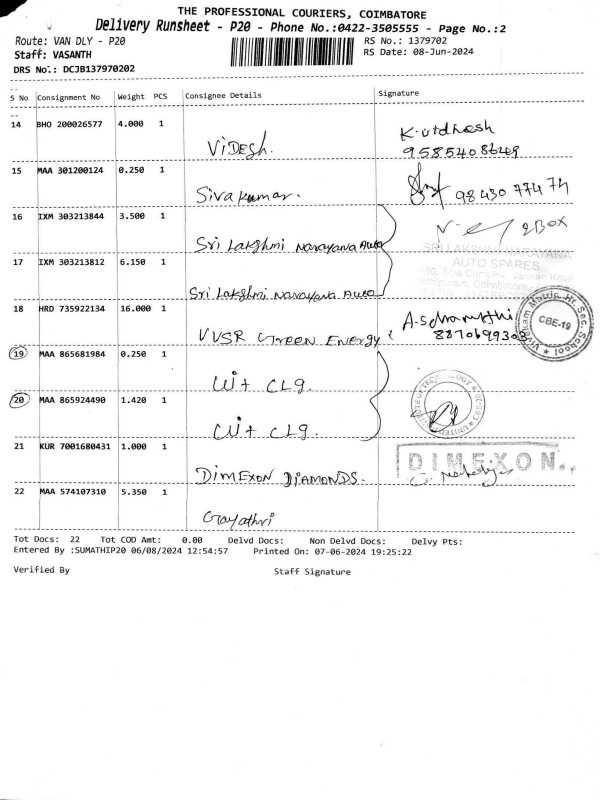 THE PROFESSIONAL COURIERS, COIMBATORE
Delivery Runsheet - P20 - Phone No.:0422-3505555 - Page No.:2
Route: VAN DLY - P20 RS No.: 1379702
Staff: VASANTH RS Date: 08-Jun-2024
DRS No.: DCJB137970202
S No Consignment No Weight PCS Consignee Details Signature
14 BHO 200026577 4.000 1
ViDESh.
15 MAA 301200124 0.250 1
Sivakumar. 98430 774 74
16 IXM 303213844 3.500 1
2BOX
Sri Lakshmi Narayana Auto
SRI LAKSHMI NARAYANA
AUTO SPARES
17 IXM 303213812 6.150 1
Sri Lakshmi Narayana Auto
18 HRD 735922134 16.000 1
VVSR Green Energy
Vivekam Matric. Hr. Sec. School
CBE-19
19 MAA 865681984 0.250 1
CLg.
20 MAA 865924490 1.420 1
CLg.
21 KUR 7001680431 1.000 1
DIMEXON
DIMEXON DIAMONDS.
22 MAA 574107310 5.350 1
Gayathri
Tot Docs: 22 Tot COD Amt: 0.00 Delvd Docs: Non Delvd Docs: Delvy Pts:
Entered By :SUMATHIP20 06/08/2024 12:54:57 Printed On: 07-06-2024 19:25:22
Verified By Staff Signature